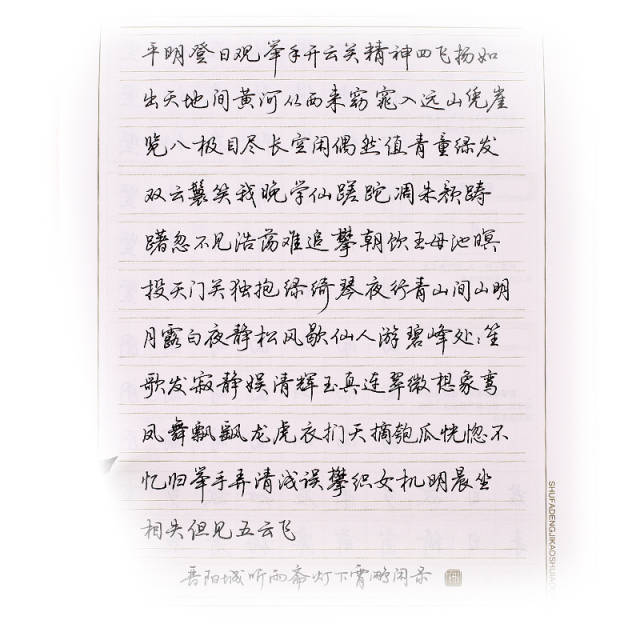 平明登日观举手开云关精神四飞扬如
出天地间黄河从西来窈窕入远山凭崖
览八极目尽长空闲偶然值青童绿发
双云鬟笑我晚学仙蹉跎凋朱颜踌
躇忽不见浩荡难追攀朝饮王母池暝
投天门关独抱绿绮琴夜行青山间山明
月露白夜静松风歇仙人游碧峰处:笙
歌发寂静娱清辉玉真连翠微想象鸾
凤舞飘飖龙虎衣扪天摘匏瓜恍惚不
忆归举手弄清浅误攀织女机明晨坐
相失但见五云飞
晋阳城听雨斋灯下霄鹏闲录
SHUFADENGJIKAOSHIJIAO